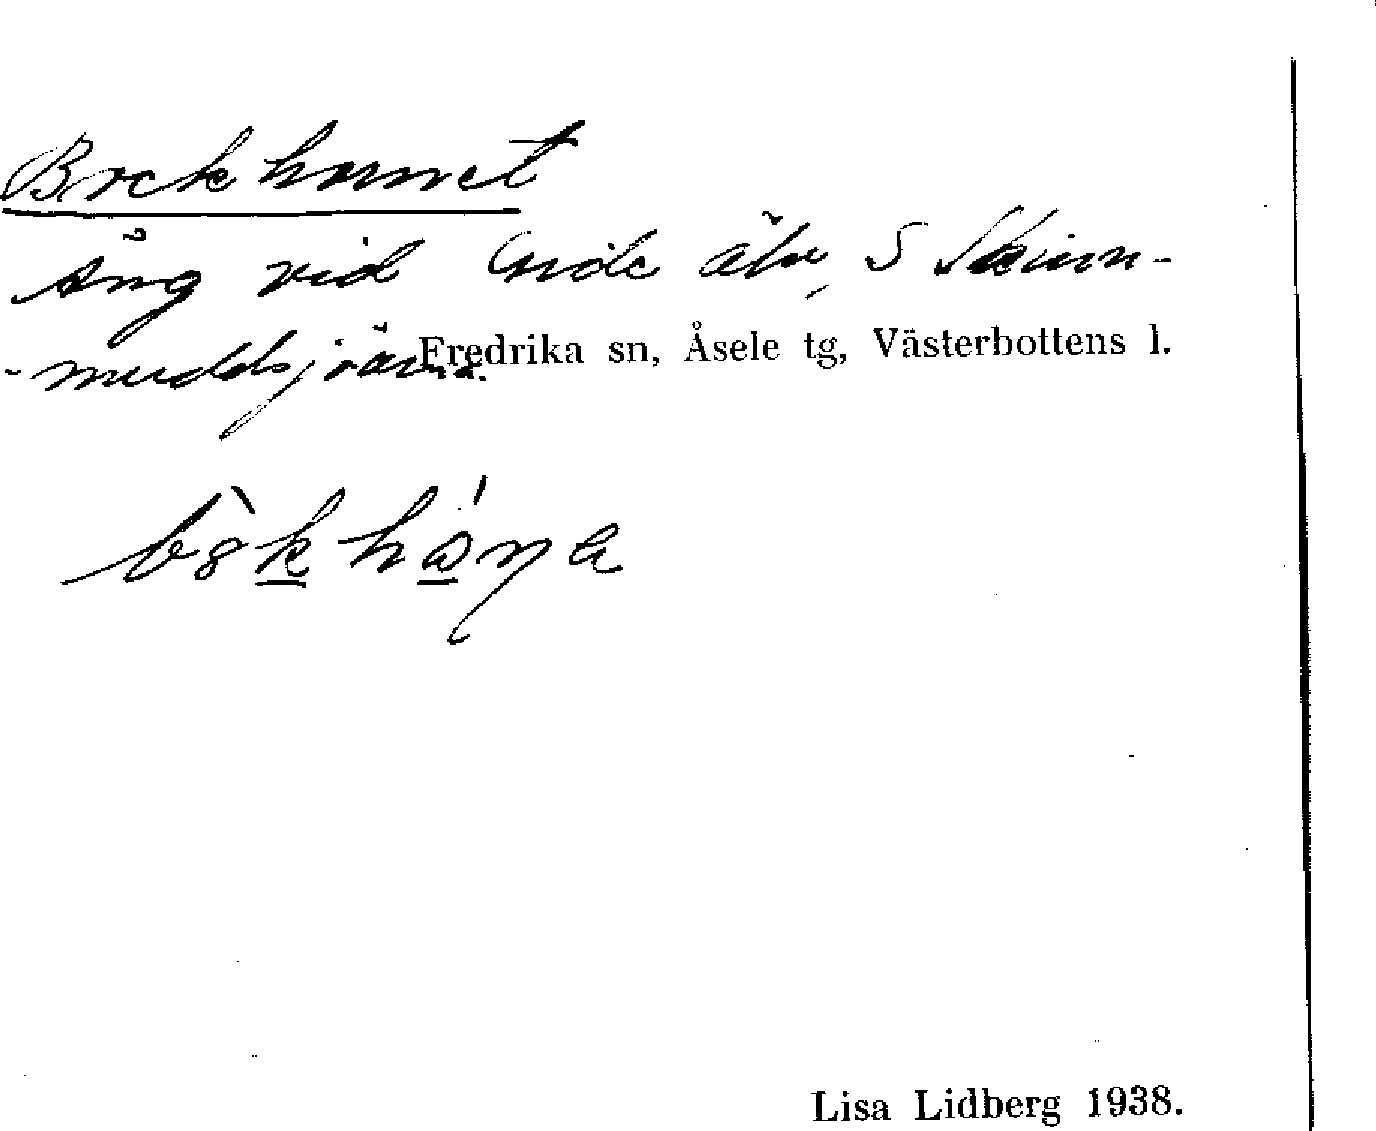 Bockhornet
Äng vid Gide älv, S Skinn-
-muddsjön.
Fredrika sn, Åsele tg, Västerbottens l.
Lisa Lidberg 1938.